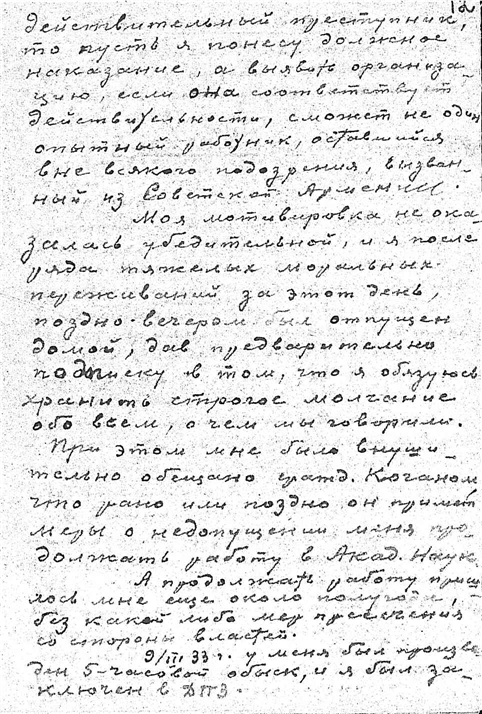 12
действительный преступник,
то пусть я понесу должное
наказание, а выявить организа-
цию, если она соответствует
действительности, сможет не один
опытный работник, оставшийся
вне всякого подозрения, вызван-
ный из Советской Армении.
Моя мотивировка не ока-
залась убедительной, и я после
ряда тяжелых моральных
переживаний за этот день,
поздно вечером был отпущен
домой, дав предварительно
подписку в том, что я обязуюсь
хранить строгое молчание
обо всем, о чем мы говорили.
При этом мне было внуши-
тельно обещано гражд. Коганом
что рано или поздно он примет
меры о недопущении меня про-
должать работу в Акад. Наук
А продолжать работу приш-
лось мне еще около полугода,
без какой либо мер пресечения
со стороны властей.
9/III 33 г. у меня был произве-
ден 5-часовой обыск, и я был за-
ключен в ДПЗ.